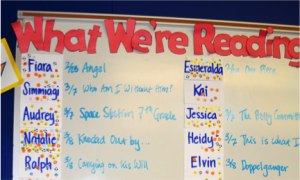 What We're Reading
Fiara 2/23 Angel
Simmiagi 3/7 Who Am I Without Him?
Audrey 3/7 Space Station 7th Grade
Natalie 3/8 Knocked Out by...
Ralph 3/8 Carrying on His Will
Esmeralda One Piece
Kai
Jessica The Pity Committee
Heidy 3/7 This is What I
Elvin 3/8 Doppelganger